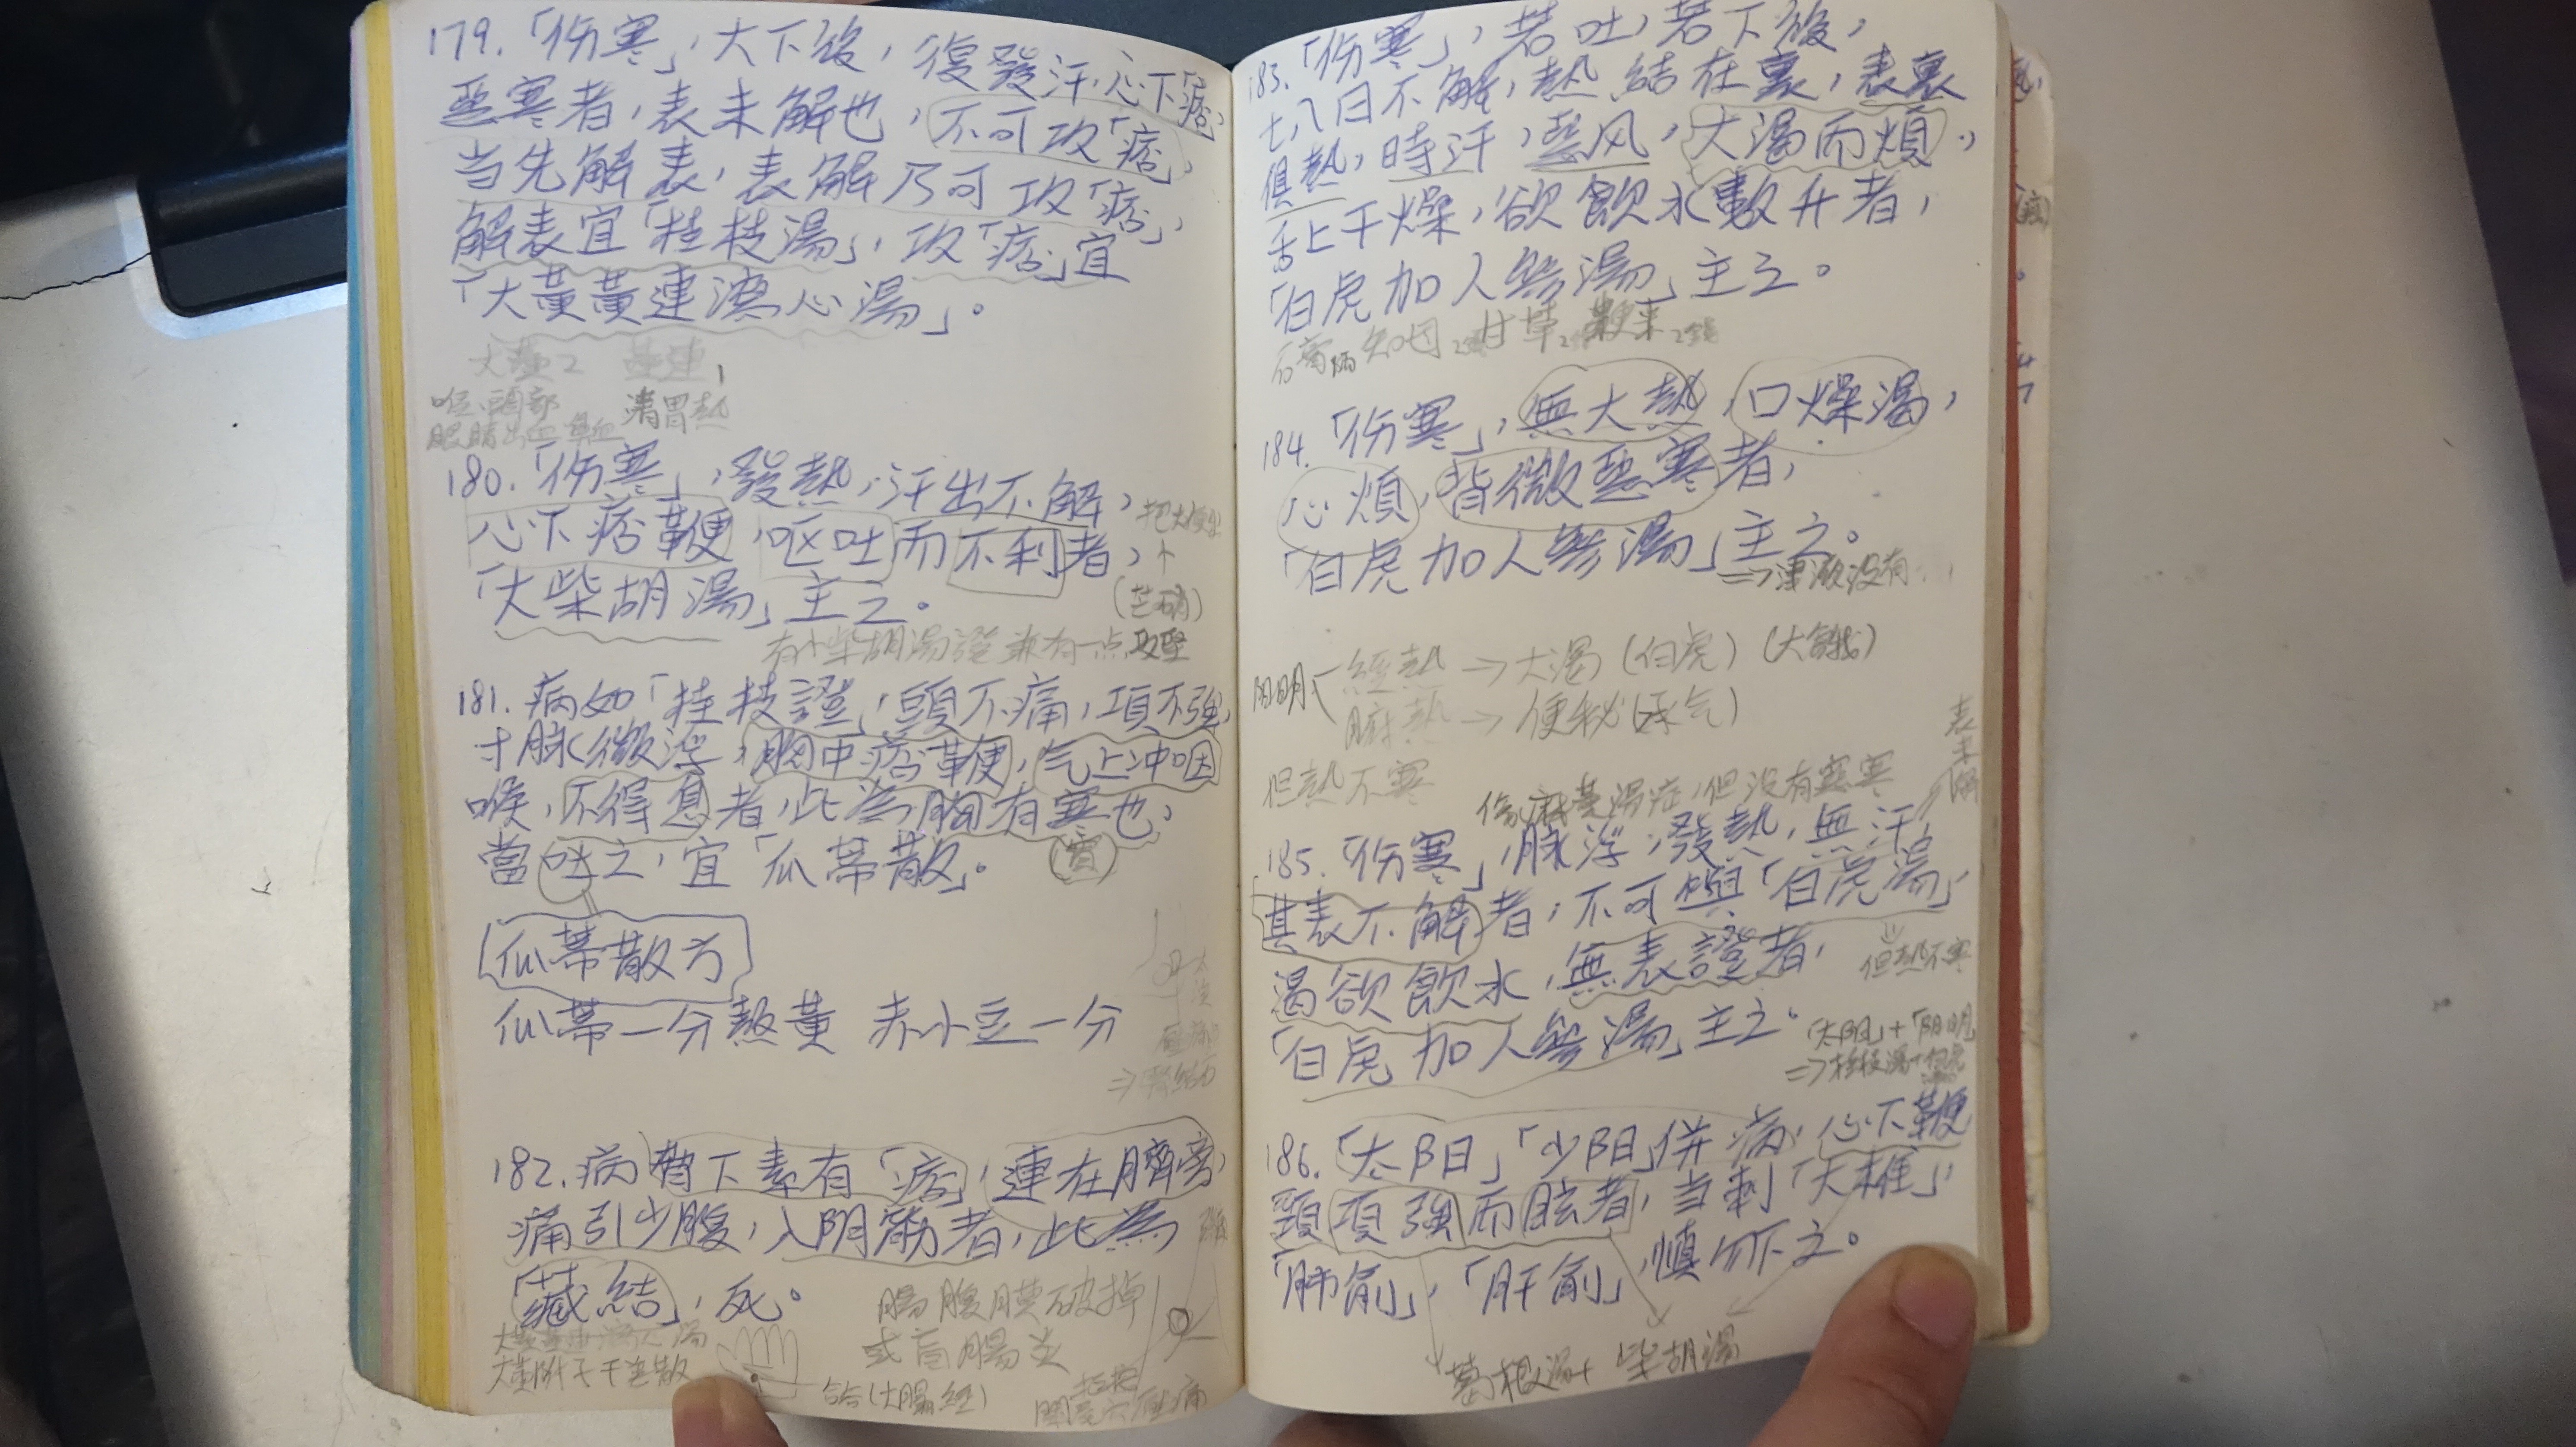 179.「伤寒」，大下後，復發汗，心下「痞」，
惡寒者，表未解也，不可攻「痞」，
当先解表，表解乃可攻「痞」，
解表宜「桂枝湯」，攻「痞」宜
「大黃黃連瀉心湯」。
大黃2 黃連1
喉、頭部 清胃熱
眼睛出血 鼻血
180.「伤寒」，發熱，汗出不解，
心下痞鞭，呕吐而不利者，
「大柴胡湯」主之。
(芒硝)
有小柴胡湯證兼有一点攻堅
181.病如「桂枝證」，頭不痛，項不強，
寸脉微浮，胸中痞鞭，气上冲咽
喉，不得息者，此為胸有寒也，
當吐之，宜「瓜蒂散」。
瓜蒂散方
瓜蒂一分熬黃 赤小豆一分
182.病脅下素有「痞」，連在臍旁，
痛引少腹，入阴筋者，此為
「藏結」，死。
腸腹膜破掉
或盲腸炎
大黃附子干姜散
合谷(大腸經)
183.「伤寒」，若吐，若下後，
七八日不解，熱結在裏，表裏
俱熱，時汗，惡风，大渴而煩，
舌上干燥，欲飲水數升者，
「白虎加人參湯」主之。
184.「伤寒」，無大熱，口燥渴，
心煩，背微惡寒者，
「白虎加人參湯」主之。
=>津液没有
阳明
經熱→大渴(白虎)(大餓)
腑熱→便秘(承气)
但熱不寒
表未解
伤寒麻黃湯症，但没有惡寒
185.「伤寒」，脉浮，發熱，無汗，
其表不解者，不可與「白虎湯」
但熱不寒
渴欲飲水，無表證者，
「白虎加人參湯」主之。
「太阳」+「阳明」
=>桂枝湯+白虎
186.「太阳」「少阳」併病，心下鞭
頸項強而眩者，当刺「大椎」，
「肺俞」，「肝俞」，慎勿下之。
葛根湯+ 柴胡湯